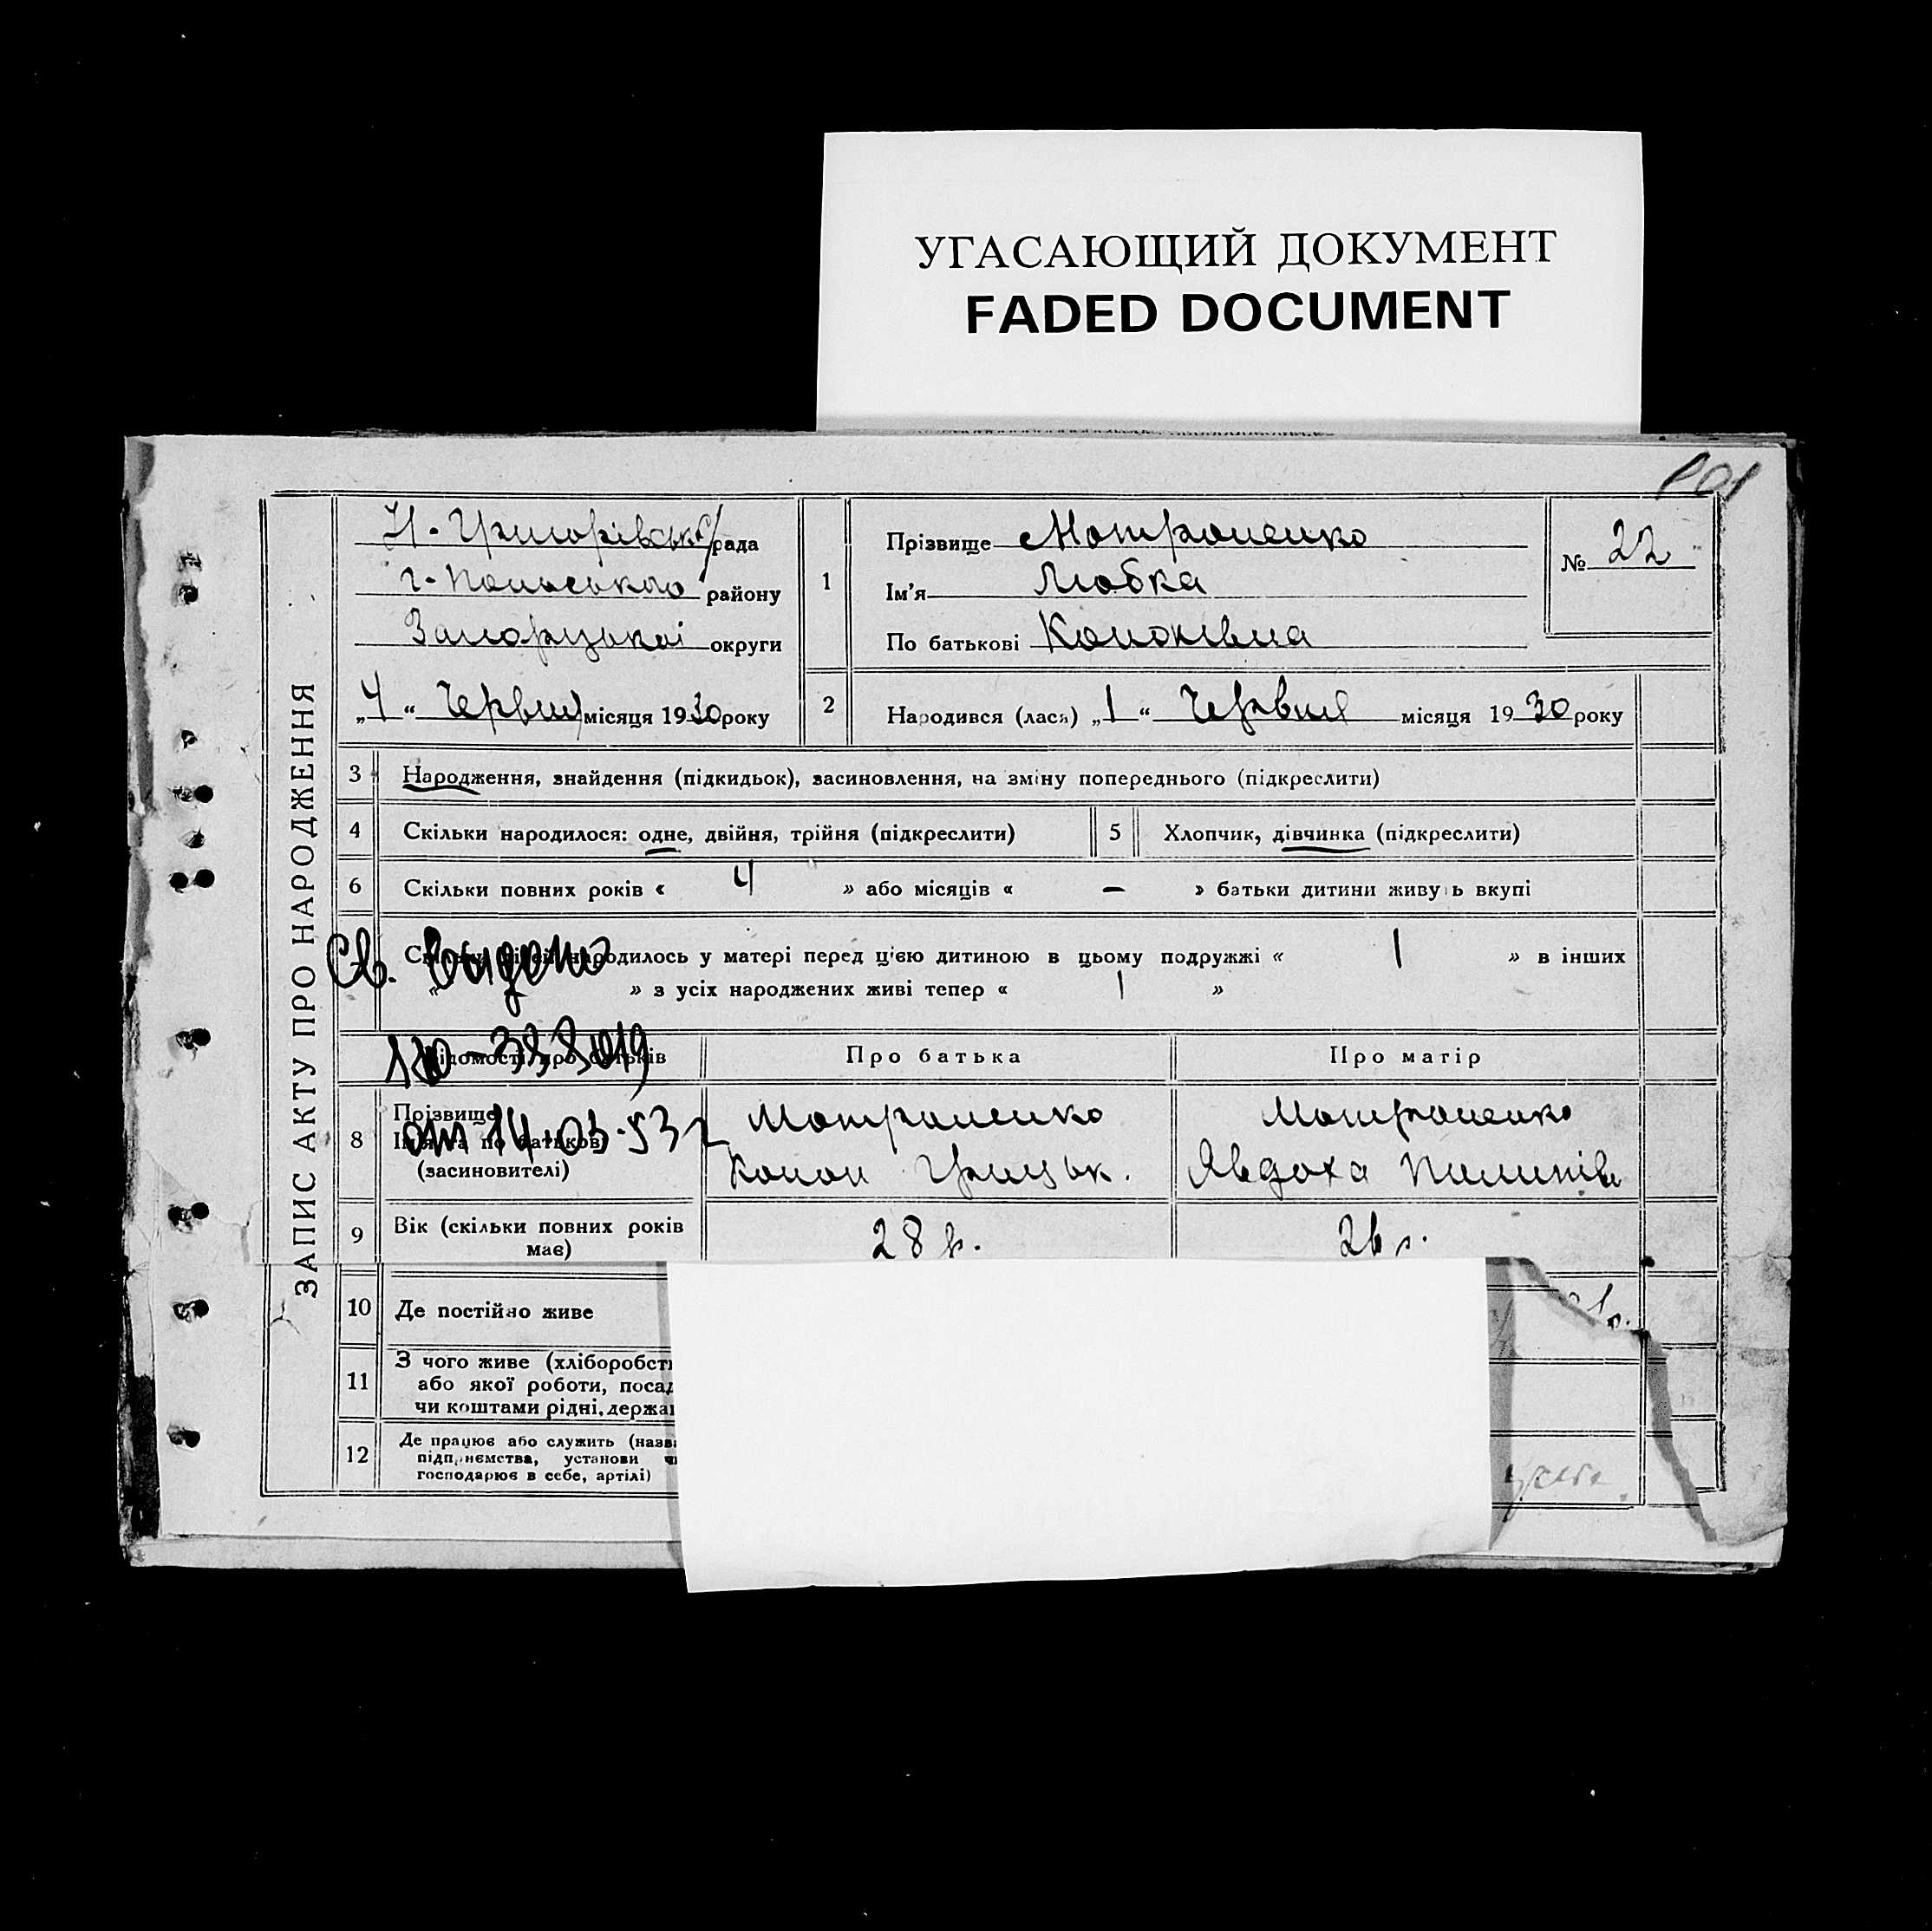 УГАСАЮЩИЙ ДОКУМЕНТ
FADED DOCUMENT
ЗАПИС АКТУ ПРО НАРОДЖЕННЯ
Н-Григорівська рада
району
округи
„4“ Червня місяця 1930 року
1
Прізвище Мотроненко
Ім'я Любка
По батькові Кононівна
№ 22
2
Народився (лася) „1“ Червня місяця 1930 року
3 Народження, знайдення (підкидьок), засиновлення, на зміну попереднього (підкреслити)
4 Скільки народилося: одне, двійня, трійня (підкреслити)
5 Хлопчик, дівчинка (підкреслити)
6 Скільки повних років « 4 » або місяців « — » батьки дитини живуть вкупі
народилось у матері перед ц'єю дитиною в цьому подружжі « 1 » в інших
« » з усіх народжених живі тепер « 1 »
Св. выдано
от 14.03.53 г
Про батька
Про матір
8
Прізвище
(засиновителі)
Мотроненко
Конон Грицьк.
Мотроненко
Явдоха Пилипів
9 Вік (скільки повних років має)
28 р.
26 р.
10 Де постійно живе
11 З чого живе (хліборобст
або якої роботи, посад
чи коштами рідні, держа
12 Де працює або служить (назв
підприємства, установи
господарює в себе, артілі)